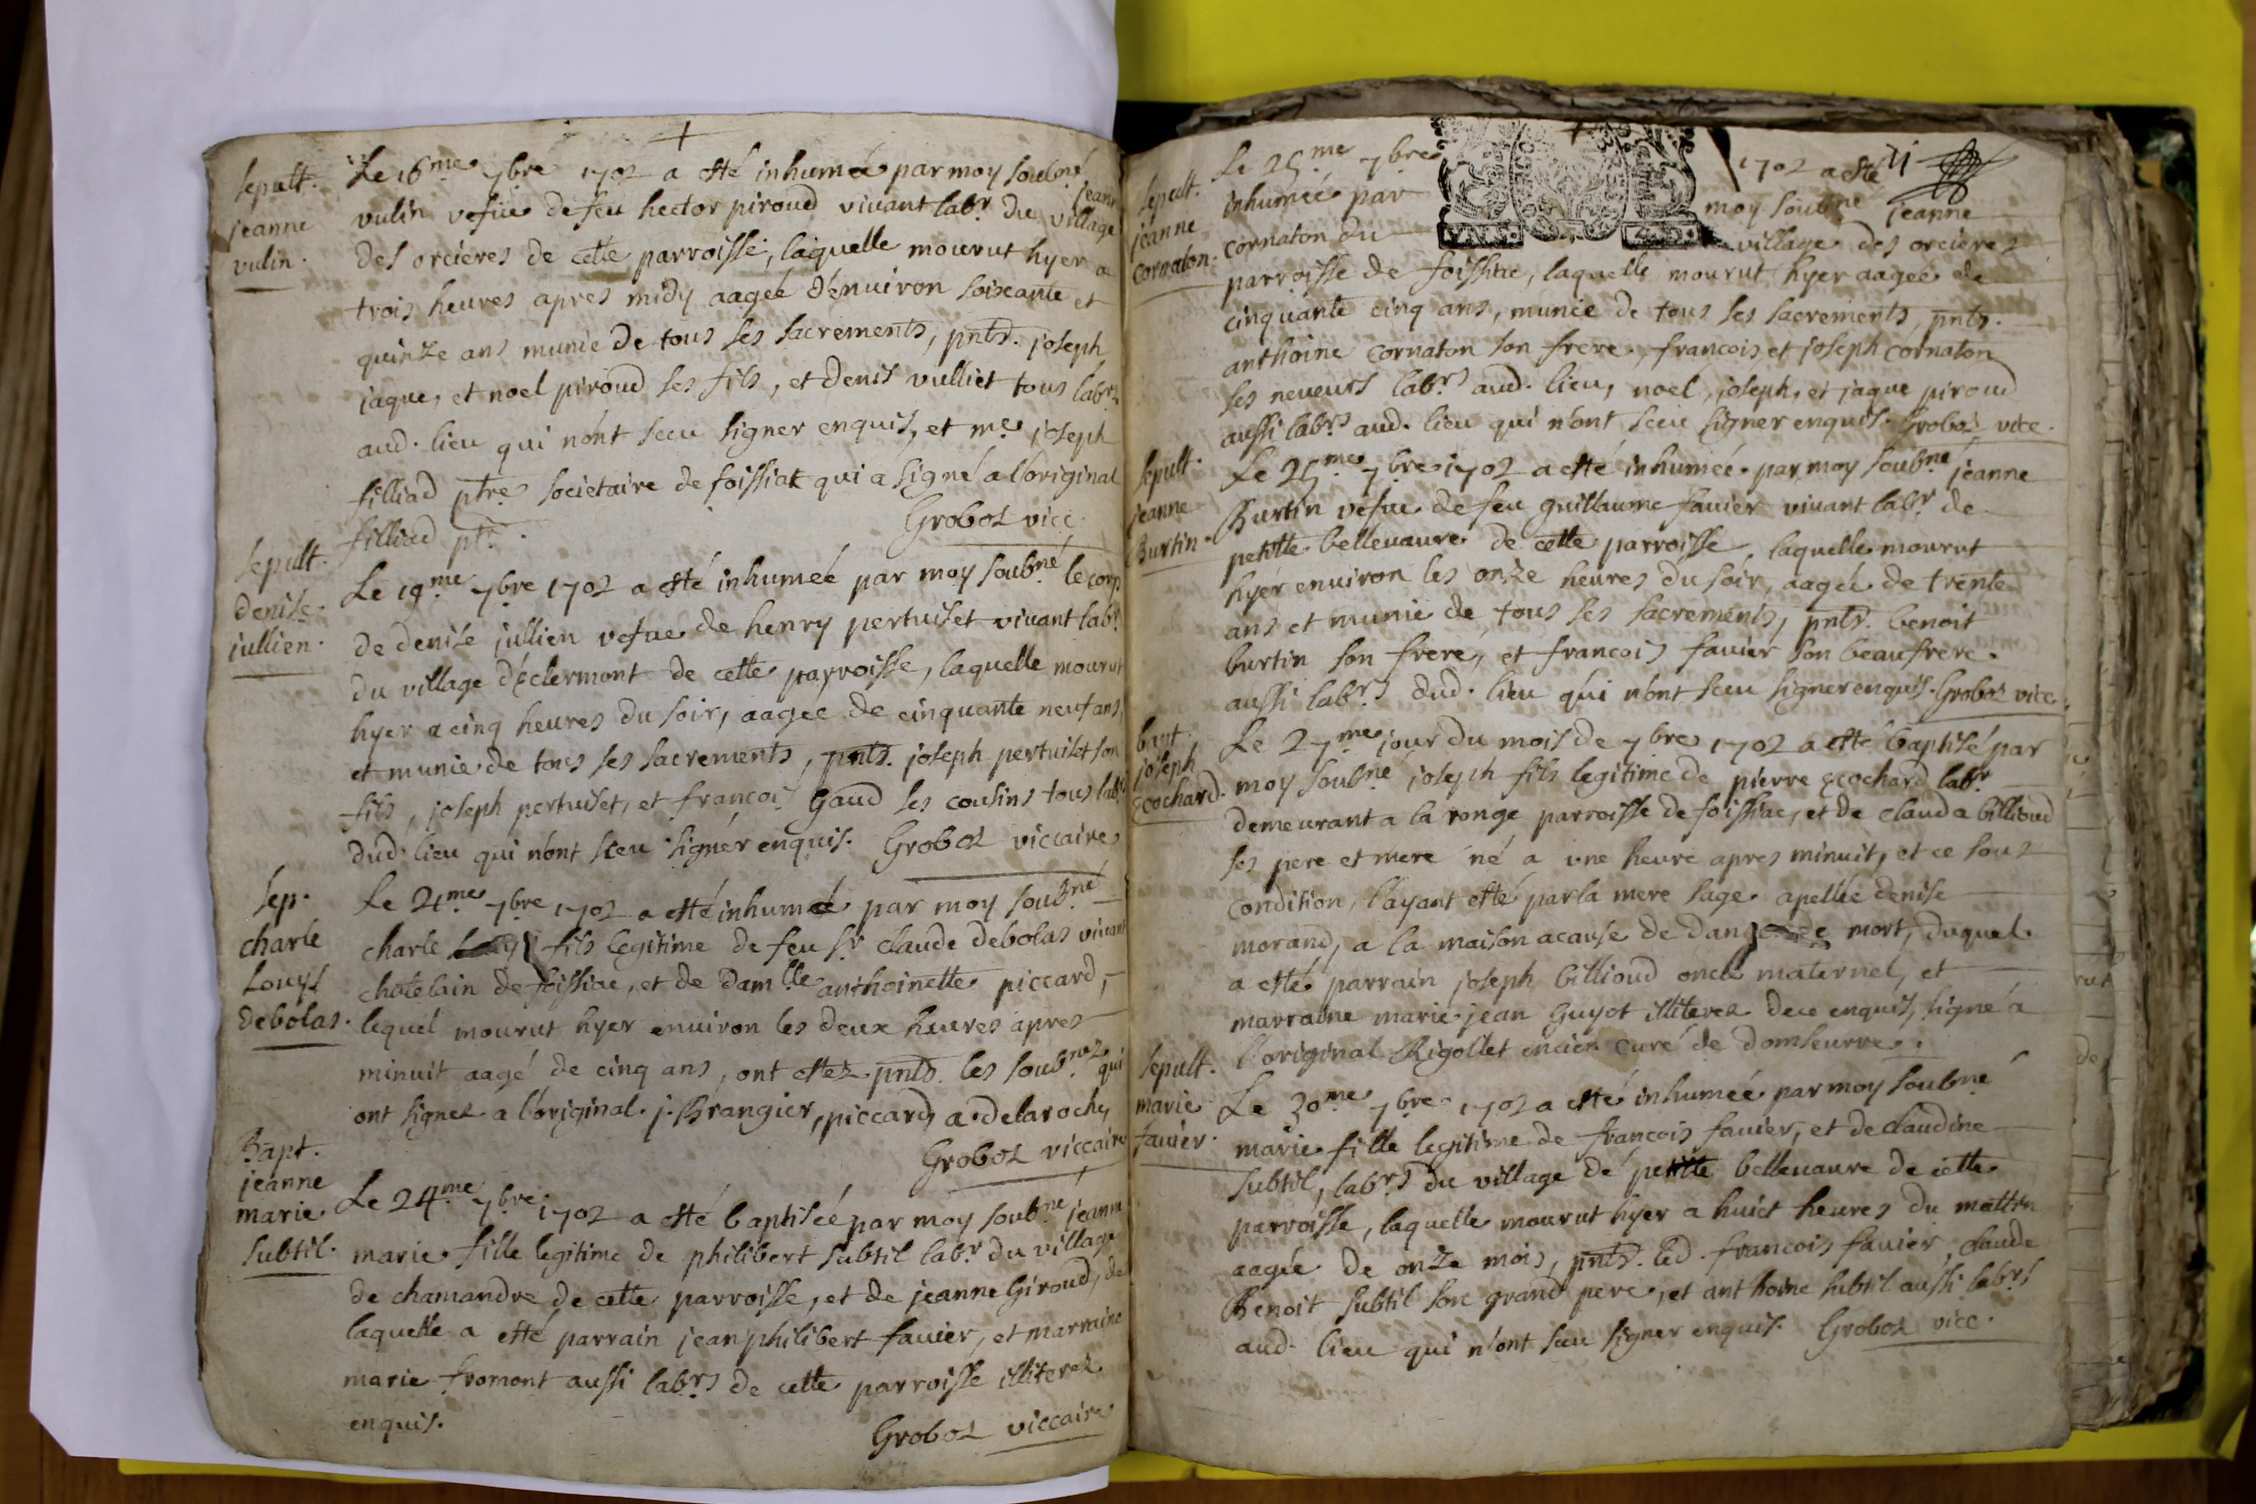 sepult.
jeanne
vulin.
Le 16me 7bre 1702 a esté inhumée par moy soubné jeanne
vulin vefue de feu hector piroud vivant labr. du village
des orcieres de cette parroisse, laquelle mourut hyer a
trois heures apres midy aagée d'enuiron soixante et
quinze ans munie de tous ses sacrements, pnts. joseph
jaque, et noel piroud ses fils, et denis vulliet tous labrs
aud. lieu qui n'ont sceu signer enquis, et me joseph
filliad ptre societaire de foissiat qui a signé a l'original
filliad ptr.
Groboz vicc.
sepult.
denise
jullien.
Le 19me 7bre 1702 a esté inhumeé par moy soubné le corp
de denise jullien vefue de henry pertuiset vivant labr.
du village d'éclermont de cette parroisse, laquelle mourut
hyer a cinq heures du soir, aagee de cinquante neuf ans,
et munie de tous ses sacrements, pnts. joseph pertuiset son
fils, joseph pertuiset, et françois Gaud ses cousins tous labrs
dud. lieu qui n'ont sceu signer enquis. Groboz viccaire
sep.
charle
Louys
debolas.
Le 21me 7bre 1702 a esté inhumé par moy soubzné
charle fils legitime de feu sr claude debolas vivant
chatelain de foissiac, et de damlle anthoinette piccard,
lequel mourut hyer environ les deux heures apres
minuit aagé de cinq ans, ont estez pnts. les soubnez qui
ont signez a l'original. j. Brangier, piccard, a. delaroche,
Groboz viccaire
Bapt.
jeanne
marie
subtil.
Le 24me 7bre 1702 a esté baptiseé par moy soubné jeanne
marie fille legitime de philibert subtil labr. du village
de chamandre de cette parroisse, et de jeanne Giroud, de
laquelle a esté parrain jean philibert favier, et marraine
marie fromont aussi labrs de cette parroisse illiterez
enquis.
Groboz viccaire
sepult.
jeanne
cornaton.
Le 25me 7bre 1702 a esté
inhumeé par moy soubné jeanne
cornaton du village des orcieres
parroisse de foissiac, laquelle mourut hyer aageé de
cinquante cinq ans, munie de tous ses sacrements, pnts.
anthoine cornaton son frere, francois et joseph cornaton
ses neveurs labrs aud. lieu, noel, joseph, et jaque piroud
aussi labrs aud. lieu qui n'ont sceu signer enquis. Groboz vice.
sepult.
jeanne
Burtin.
Le 25me 7bre 1702 a esté inhumeé par moy soubné jeanne
Burtin vefue de feu guillaume favier vivant labr. de
petitte bellevavre de cette parroisse, laquelle mourut
hyer environ les onze heures du soir, aagée de trente
ans et munie de tous ses sacrements, pnts. benoit
burtin son frere, et francois favier son beaufrere.
aussi labrs dud. lieu qui n'ont sceu signer enquis. Groboz vice.
bapt.
joseph
ecochard.
Le 27me jour du mois de 7bre 1702 a esté baptisé par
moy soubné joseph fils legitime de pierre ecochard labr.
demeurant a la ronge parroisse de foissiac, et de clauda billioud
ses pere et mere né a une heure apres minuit, et ce sous
condition, l'ayant esté par la mere sage apellée denise
morand, a la maison a cause de danger de mort, duquel
a esté parrain joseph billioud oncle maternel, et
marraine marie jean Guyot illiterez de ce enquis, signé a
l'original Rigollet encien curé de domseurre.
sepult.
marie
favier.
Le 30me 7bre 1702 a esté inhumeé par moy soubné
marie fille legitime de francois favier, et de claudine
subtil, labrs du village de petitte bellevavre de cette
parroisse, laquelle mourut hyer a huict heures du mattin
aagée de onze mois, pnts. led. francois favier, claude
Benoit subtil son grand pere, et anthoine subtil aussi labrs
aud. lieu qui n'ont sceu signer enquis. Groboz vice.